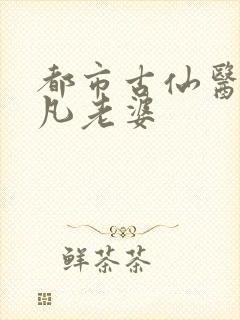 都市古仙醫
凡老婆
鲜茶茶